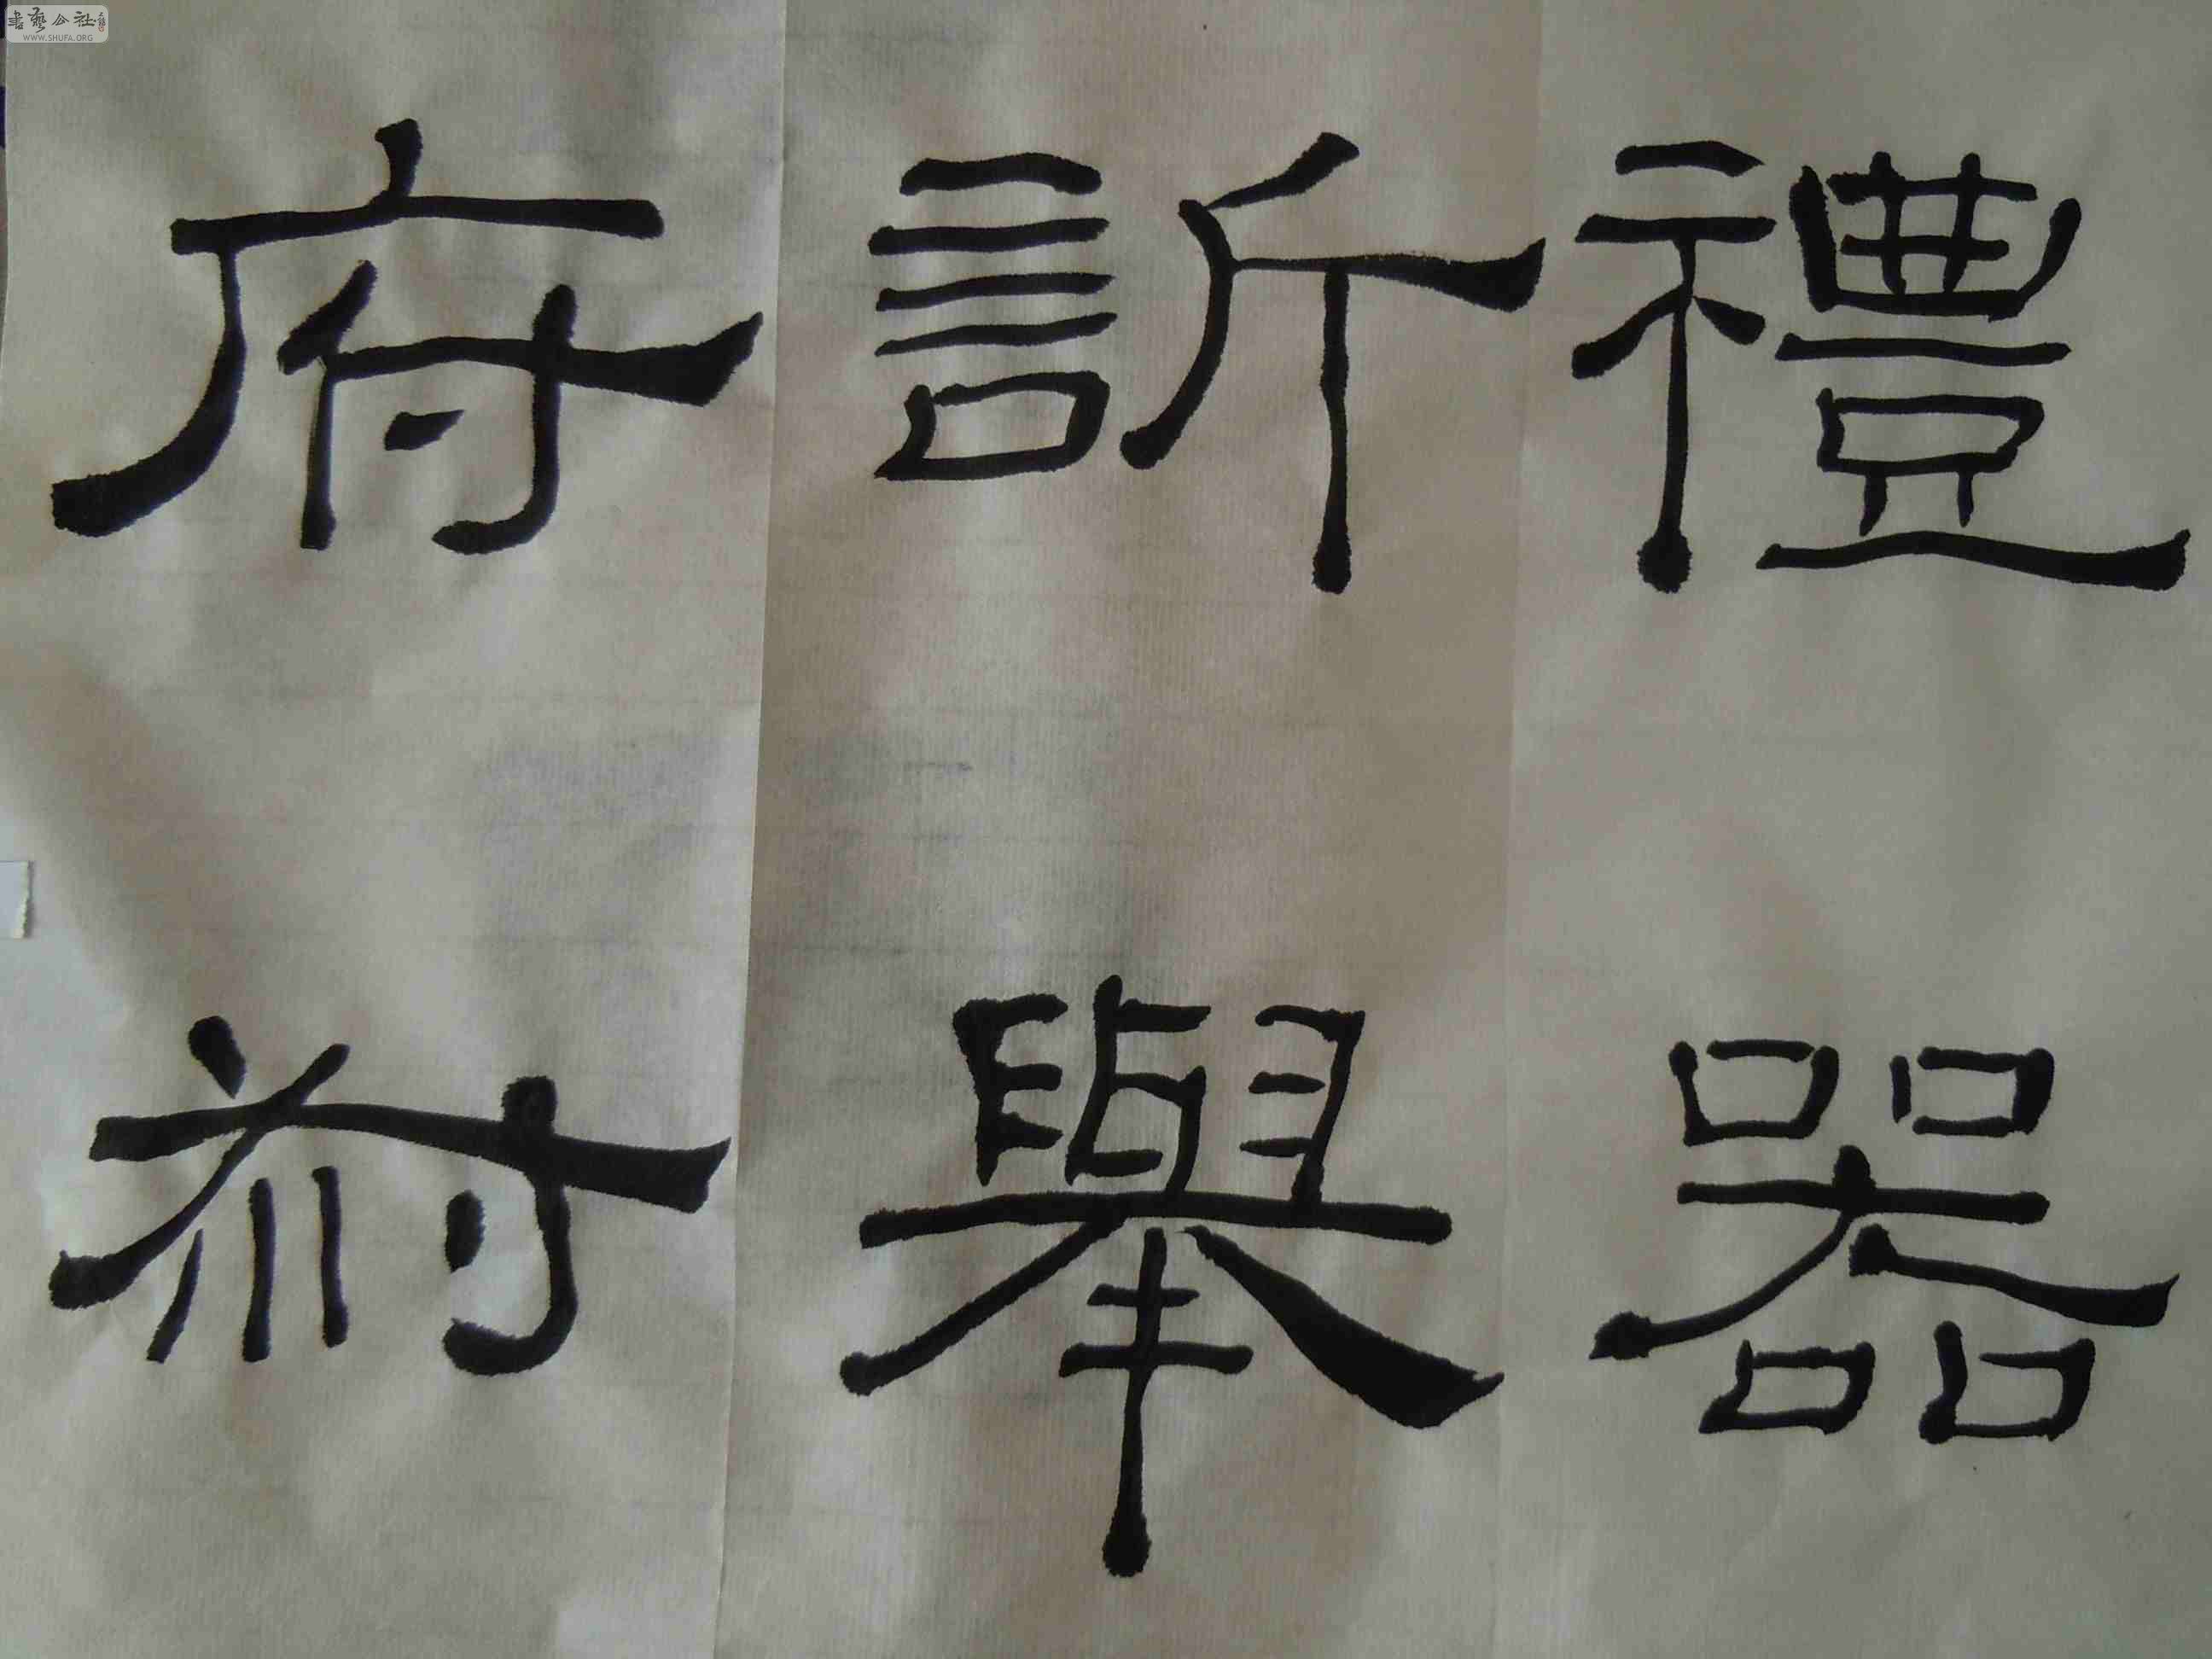 書藝公社
WWW.SHUFA.ORG
禮器
訢舉
府